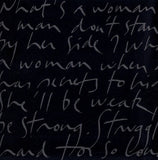 What's a woman
a man don't stan
by her side? wh
a woman when
has secrets to hi
She'll be weak
be strong. Struggl
hard for so lo